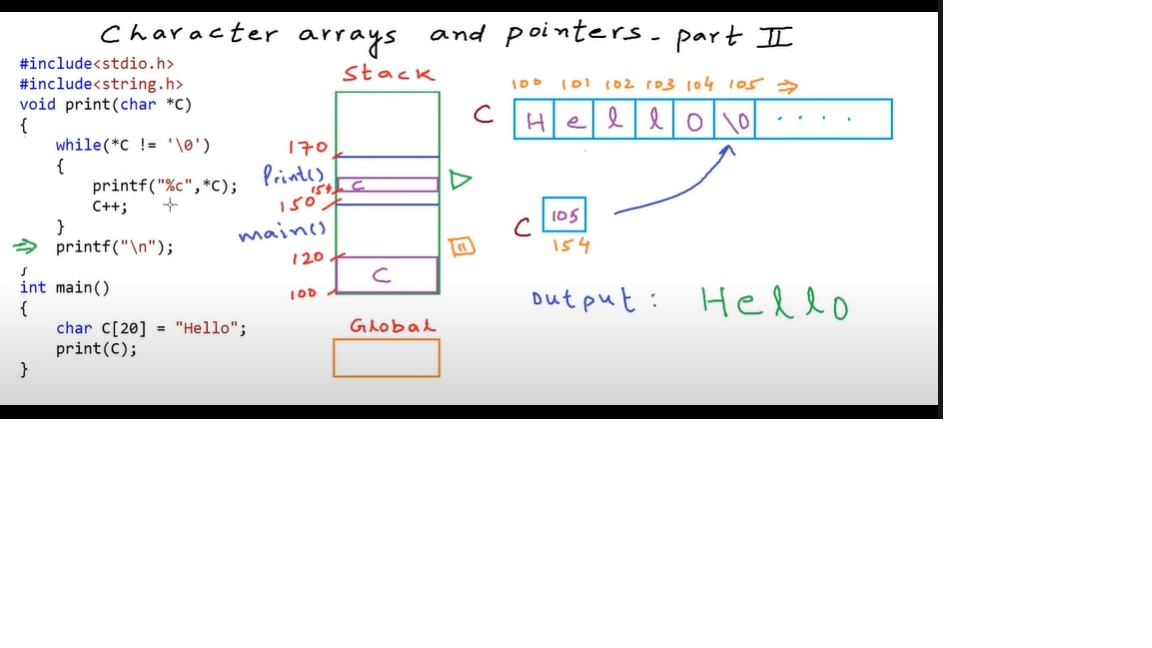 Character arrays and pointers - part II
#include<stdio.h>
#include<string.h>
void print(char *C)
{
while(*C != '\0')
{
printf("%c",*C);
C++;
}
printf("\n");
}
int main()
{
char C[20] = "Hello";
print(C);
}
Stack
170
Print()
154
C
150
main()
120
C
100
Global
100 101 102 103 104 105 ⇒
C H e l l o \0 . . . .
C 105
154
output : Hello